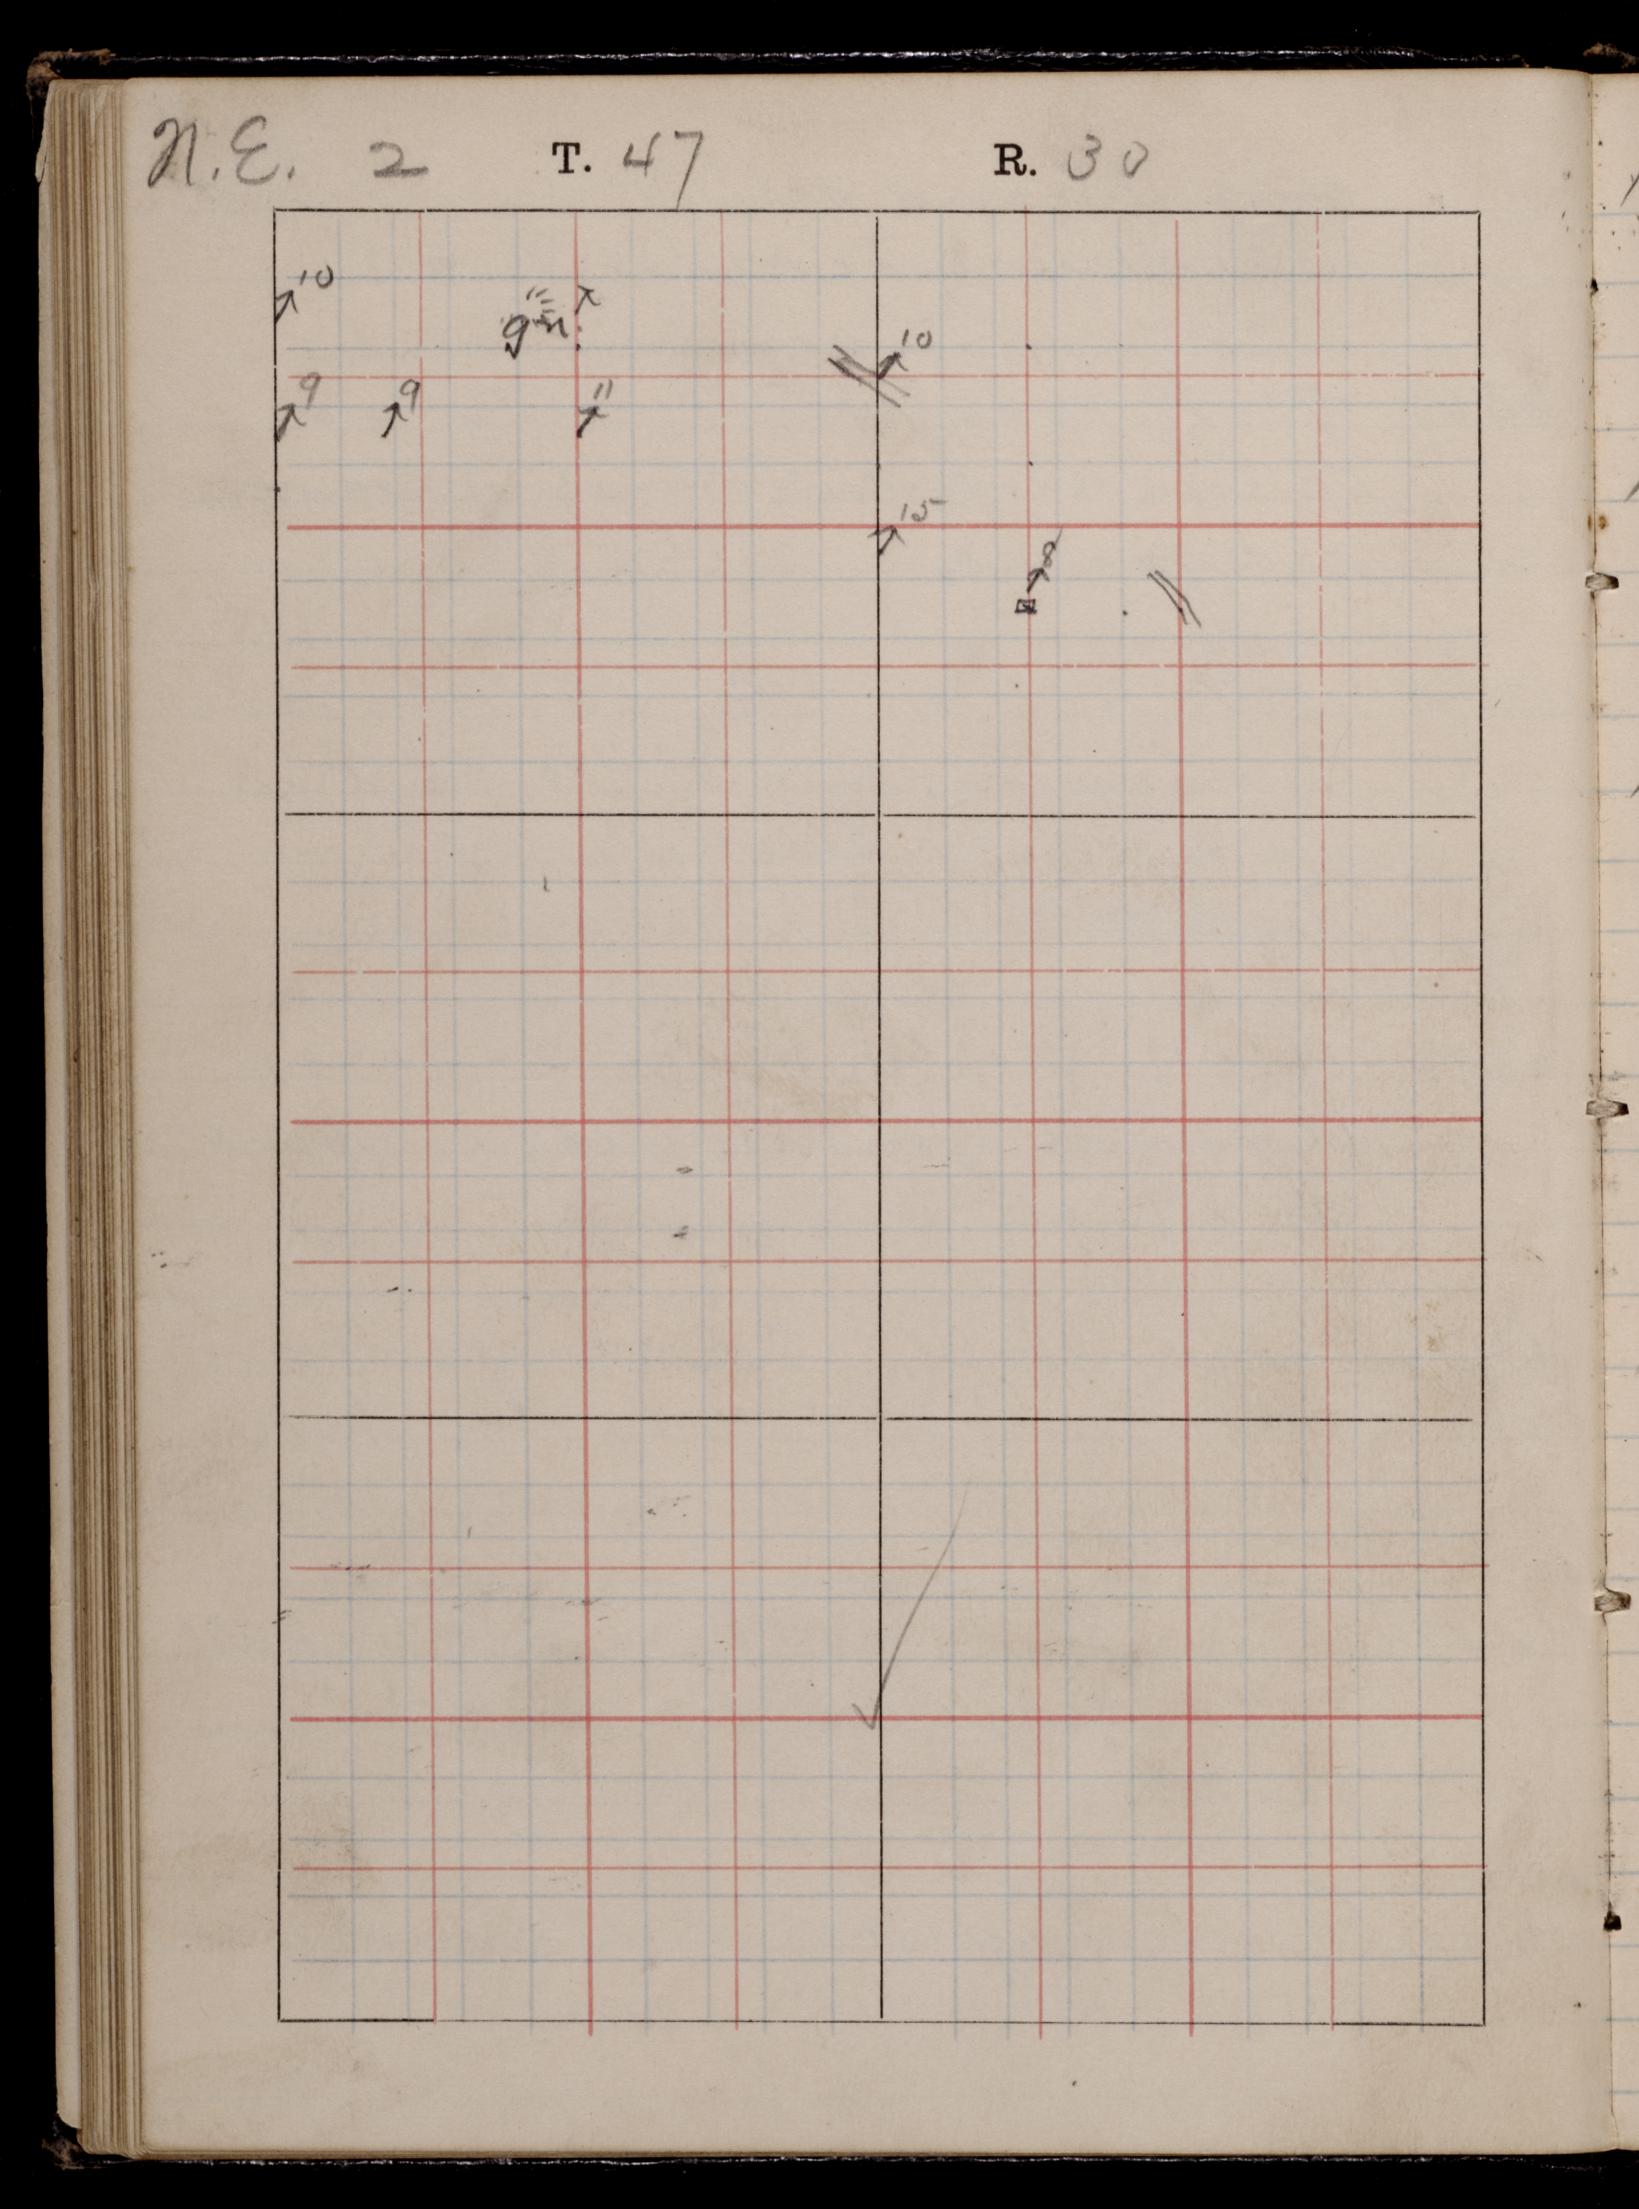 N.E. 2 T. 47 R. 30
10
11
10
9 9 11
15
8